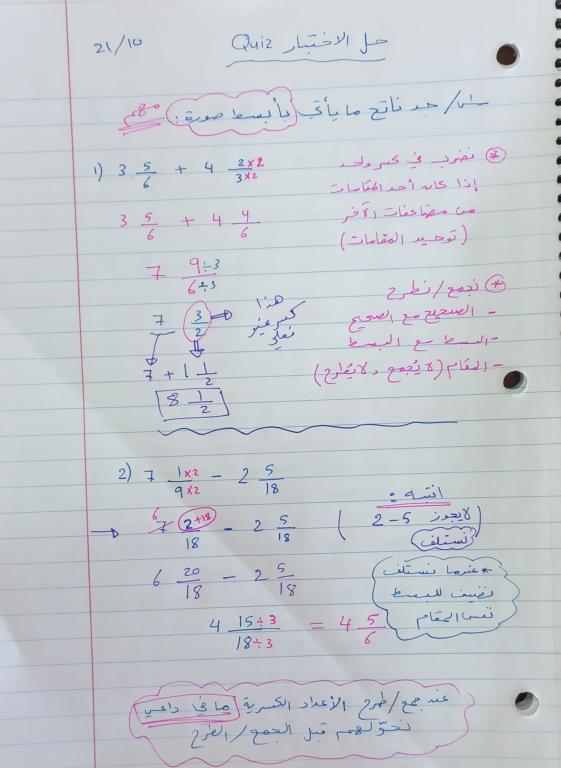 حل الاختبار Quiz 21/10
س١/ جد ناتج ما يأتي بأبسط صورة: مهم
1) 3 5/6 + 4 2×2/3×2
3 5/6 + 4 4/6
7 9÷3/6÷3
7 3/2 ⇒ هذا كسر غير فعلي
7 + 1 1/2
8 1/2
* نضرب في كسر واحد
إذا كان أحد المقامات
من مضاعفات الآخر
(توحيد المقامات)
* نجمع/نطرح
- الصحيح مع الصحيح
- البسط مع البسط
- المقام (لا يُجمع ولا يُطرح)
2) 7 1×2/9×2 - 2 5/18
→ 6 7 2+18/18 - 2 5/18
6 20/18 - 2 5/18
4 15÷3/18÷3 = 4 5/6
انتبه:
(لا يجوز 5-2
نستلف)
* عندما نستلف
نضيف للبسط
نفس المقام
عند جمع/طرح الأعداد الكسرية ما في داعي
نحولهم قبل الجمع/الطرح